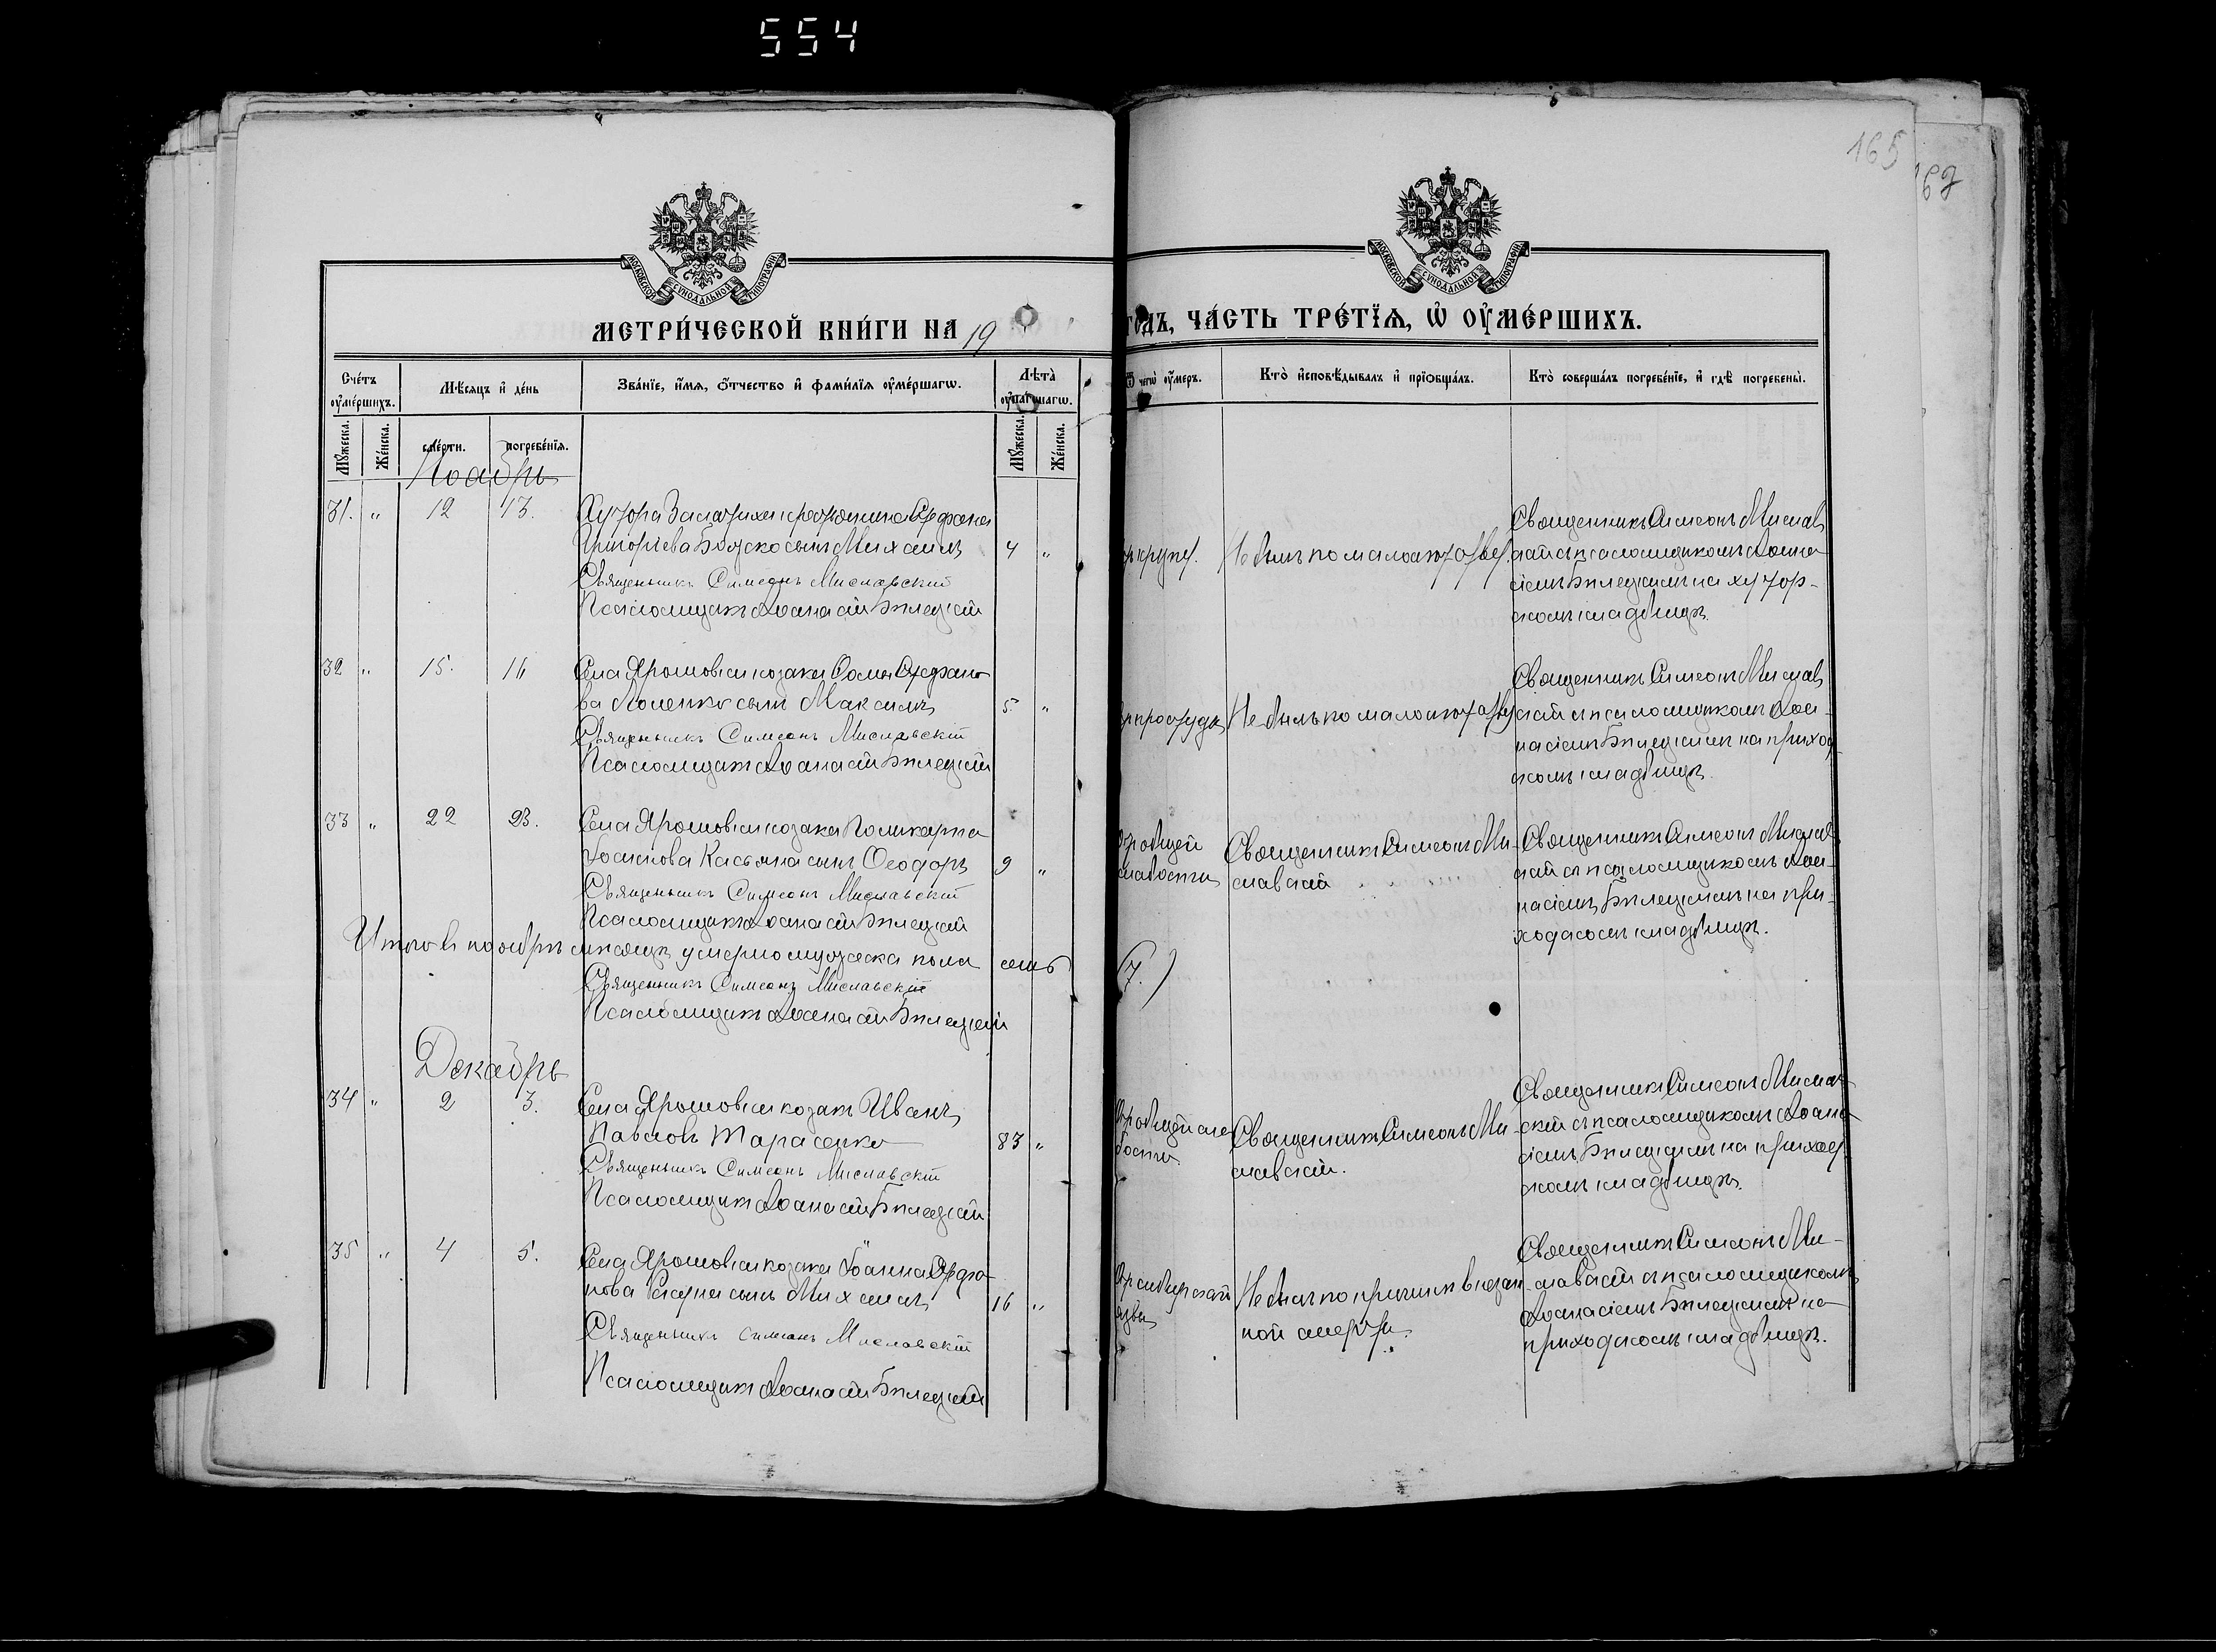 554
165
МОСКОВСКОЙ СѴНОДАЛЬНОЙ ТИПОГРАФІИ
МОСКОВСКОЙ СѴНОДАЛЬНОЙ ТИПОГРАФІИ
МЕТРИ́ЧЕСКОЙ КНИ́ГИ НА 19
ГОДЪ, ЧА́СТЬ ТРЕ́ТЇѦ, Ѡ҆ ОУ҆МЕ́РШИХЪ.
Счетъ оумершихъ.
Мѣсяцъ и день
Званїе, имя, отчество и фамилїя оумершагѡ.
Лѣта
Ѿ чегѡ оумеръ.
Кто исповѣдывалъ и прїобщалъ.
Кто совершалъ погребенїе, и гдѣ погребены.
Мужеска. Женска. смерти. погребенїя. Мужеска. Женска.
Ноябрь
31. " 12 13.
Григорьева сынъ Михаилъ 4 "
Священникъ Симеонъ Миславский
Псаломщикъ Аѳанасій Бѣлецкій
Не былъ по малолѣтству.
Священникъ Симеонъ Мислав
скій съ псаломщикомъ Аѳана
сіемъ Бѣлецкимъ на хутор-
скомъ кладбищѣ.
32 " 15. 16
Села Ярошовки козака Ѳомы Стефано
ва сынъ Максимъ 5. "
Священникъ Симеонъ Миславскій
Псаломщикъ Аѳанасій Бѣлецкій
отъ простуды
Не былъ по малолѣтству
Священникъ Симеонъ Мислав
скій съ псаломщикомъ Аѳа-
насіемъ Бѣлецкимъ на приход
скомъ кладбищѣ.
33 " 22 23.
Села Ярошовки козака Поликарпа
Касьяна сынъ Ѳеодоръ 9 "
Священникъ Симеонъ Миславскій
Псаломщикъ Аѳанасій Бѣлецкій
Отъ общей
слабости
Священникъ Симеонъ Ми-
славскій
Священникъ Симеонъ Мислав
скій съ псаломщикомъ Аѳа-
насіемъ Бѣлецкимъ на при-
ходскомъ кладбищѣ.
Итого въ ноябрѣ мѣсяцѣ умерло мужеска пола семь (7.)
Священникъ Симеонъ Миславскій
Псаломщикъ Аѳанасій Бѣлецкій
Декабрь
34 " 2 3.
Села Ярошовки козакъ Иванъ
Павловъ Тарасенко 83 "
Священникъ Симеонъ Миславскій
Псаломщикъ Аѳанасій Бѣлецкій
Отъ общей сла
бости
Священникъ Симеонъ Ми-
славскій.
Священникъ Симеонъ Мислав
скій съ псаломщикомъ Аѳана
сіемъ Бѣлецкимъ на приход
скомъ кладбищѣ.
35 " 4 5.
Села Ярошовки козака Іоанна
сынъ Михаилъ 16 "
Священникъ Симеонъ Миславскій
Псаломщикъ Аѳанасій Бѣлецкій
Отъ сибирской
язвы
Не былъ по причинѣ внезап
ной смерти.
Священникъ Симеонъ Ми-
славскій съ псаломщикомъ
Аѳанасіемъ Бѣлецкимъ на
приходскомъ кладбищѣ.